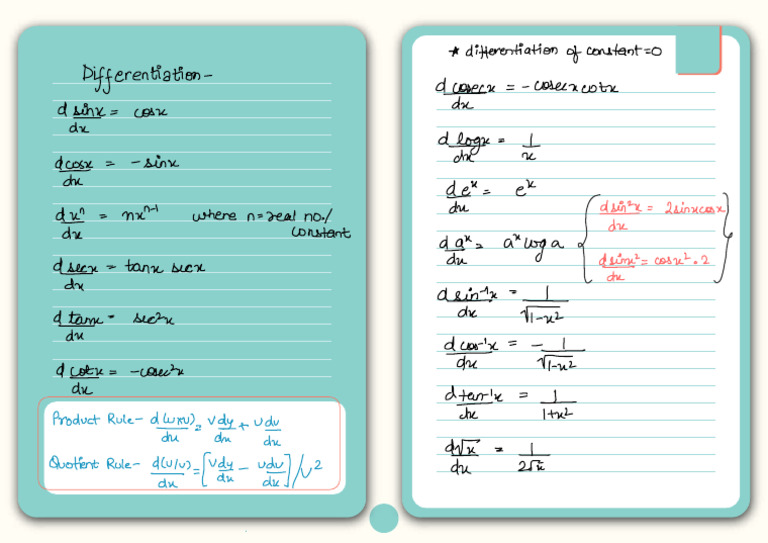 Differentiation -
d sinx/dx = cosx
d cosx/dx = - sinx
d xⁿ/dx = nxⁿ⁻¹ where n = real no./constant
d secx/dx = tanx secx
d tanx/dx = sec²x
d cotx/dx = - cosec²x
Product Rule - d(u×v)/dx = v dy/dx + u dv/dx
Quotient Rule - d(u/v)/dx = [v dy/dx - u dv/dx]/v²
* differentiation of constant = 0
d cosecx/dx = - cosecx cotx
d logx/dx = 1/x
d eˣ/dx = eˣ
d aˣ/dx = aˣ log a
d sin²x/dx = 2sinx cosx
d sinx²/dx = cosx² · 2
d sin⁻¹x/dx = 1/√1-x²
d cos⁻¹x/dx = - 1/√1-x²
d tan⁻¹x/dx = 1/1+x²
d√x/dx = 1/2√x